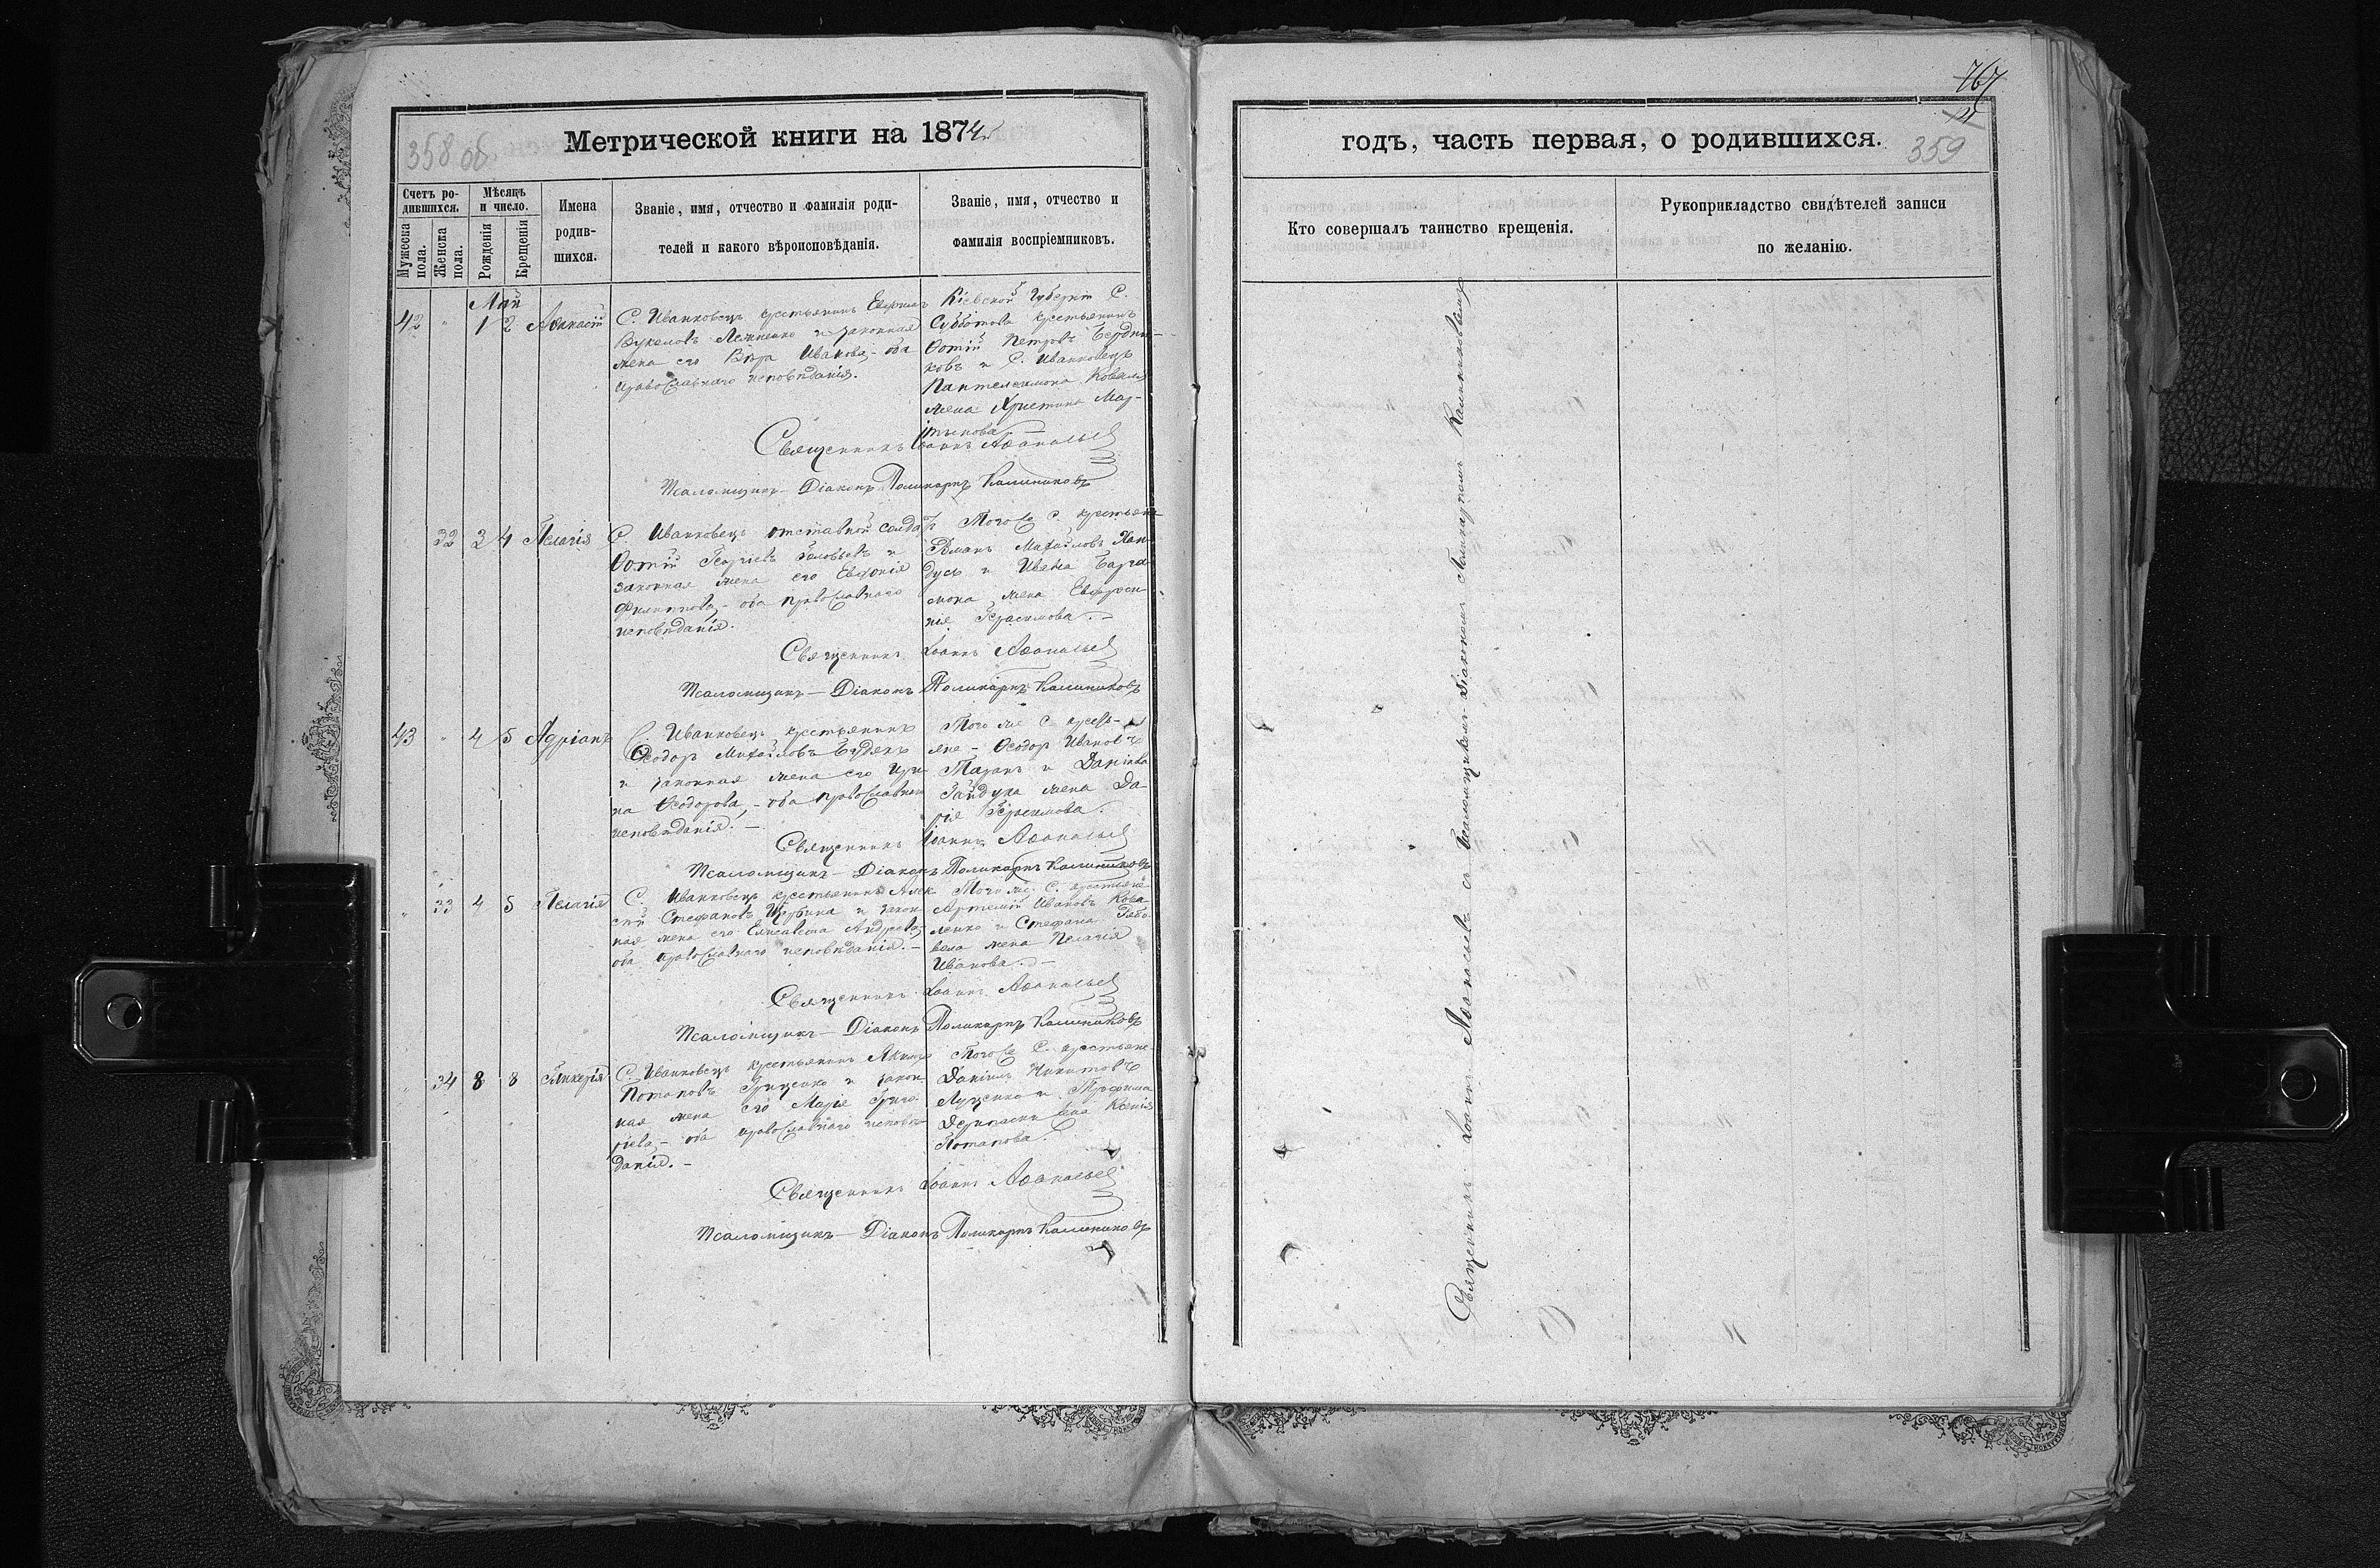 767
358 об.
Метрической книги на 1874
годъ, часть первая, о родившихся.
359
Счетъ ро-
дившихся.
Мужеска
пола.
Женска
пола.
Мѣсяцъ
и число.
Рожденія
Крещенія
Имена
родив-
шихся.
Званіе, имя, отчество и фамилія роди-
телей и какого вѣроисповѣданія.
Званіе, имя, отчество и
фамилія воспріемниковъ.
Кто совершалъ таинство крещенія.
Рукоприкладство свидѣтелей записи
по желанію.
Май
42 " 1 2 Аѳанасій
С. Иванковецъ крестьянинъ
и законная
жена его Вѣра Иванова, - оба
православнаго исповѣданія.
Кіевской Губерніи С.
Субботова крестьянинъ
Фотій Петровъ Бердни-
ковъ и С. Иванковецъ
Пантелеимона Коваля
жена Христина Мар-
тынова
Священникъ Іоаннъ Аѳанасьев
Псаломщикъ - Діаконъ Поликарпъ Калиниковъ
" 32 3 4 Пелагія
С. Иванковецъ отставной солдатъ
Фотій Георгіевъ Соловьевъ и
законная жена его Евдокія
Филиппова, - оба православнаго
исповѣданія.
Того же С. крестьяне
Романъ Михайловъ
и Ивана
жена Евфроси-
нія Герасимова. -
Священникъ Іоаннъ Аѳанасьев
Псаломщикъ - Діаконъ Поликарпъ Калиниковъ
43 " 4 5 Адріанъ
С. Иванковецъ крестьянинъ
Ѳеодоръ Михайловъ Будякъ
и законная жена его Ири-
на Ѳеодорова, - оба православнаго
исповѣданія. -
Того же С. кресть-
яне - Ѳеодоръ Ивановъ
Таранъ и Даніила
Гайдука жена Да-
рія Герасимова.
Священникъ Іоаннъ Аѳанасьев
Псаломщикъ - Діаконъ Поликарпъ Калиниковъ
" 33 4 5 Пелагія
С. Иванковецъ крестьянинъ Алек
сій Стефановъ Щербина и закон
ная жена его Елисавета Андреева,
оба православнаго исповѣданія. -
Того же С. крестьяне
Артемій Ивановъ Кова
ленко и Стефана Рябо
вола жена Пелагія
Иванова. -
Священникъ Іоаннъ Аѳанасьев
Псаломщикъ - Діаконъ Поликарпъ Калиниковъ
" 34 8 8 Гликерія
С. Иванковецъ крестьянинъ Акимъ
Потаповъ Гриценко и закон
ная жена его Марія Григо
ріева, - оба православнаго исповѣ
данія. -
Того же С. крестьяне
Даніилъ Никитовъ
Луценко и Трофима
Дерипаски жена Ксенія
Потапова.
Священникъ Іоаннъ Аѳанасьев
Псаломщикъ - Діаконъ Поликарпъ Калиниковъ
Священникъ Іоаннъ Аѳанасьевъ съ Псаломщикомъ - Діакономъ Поликарпомъ Калиниковымъ